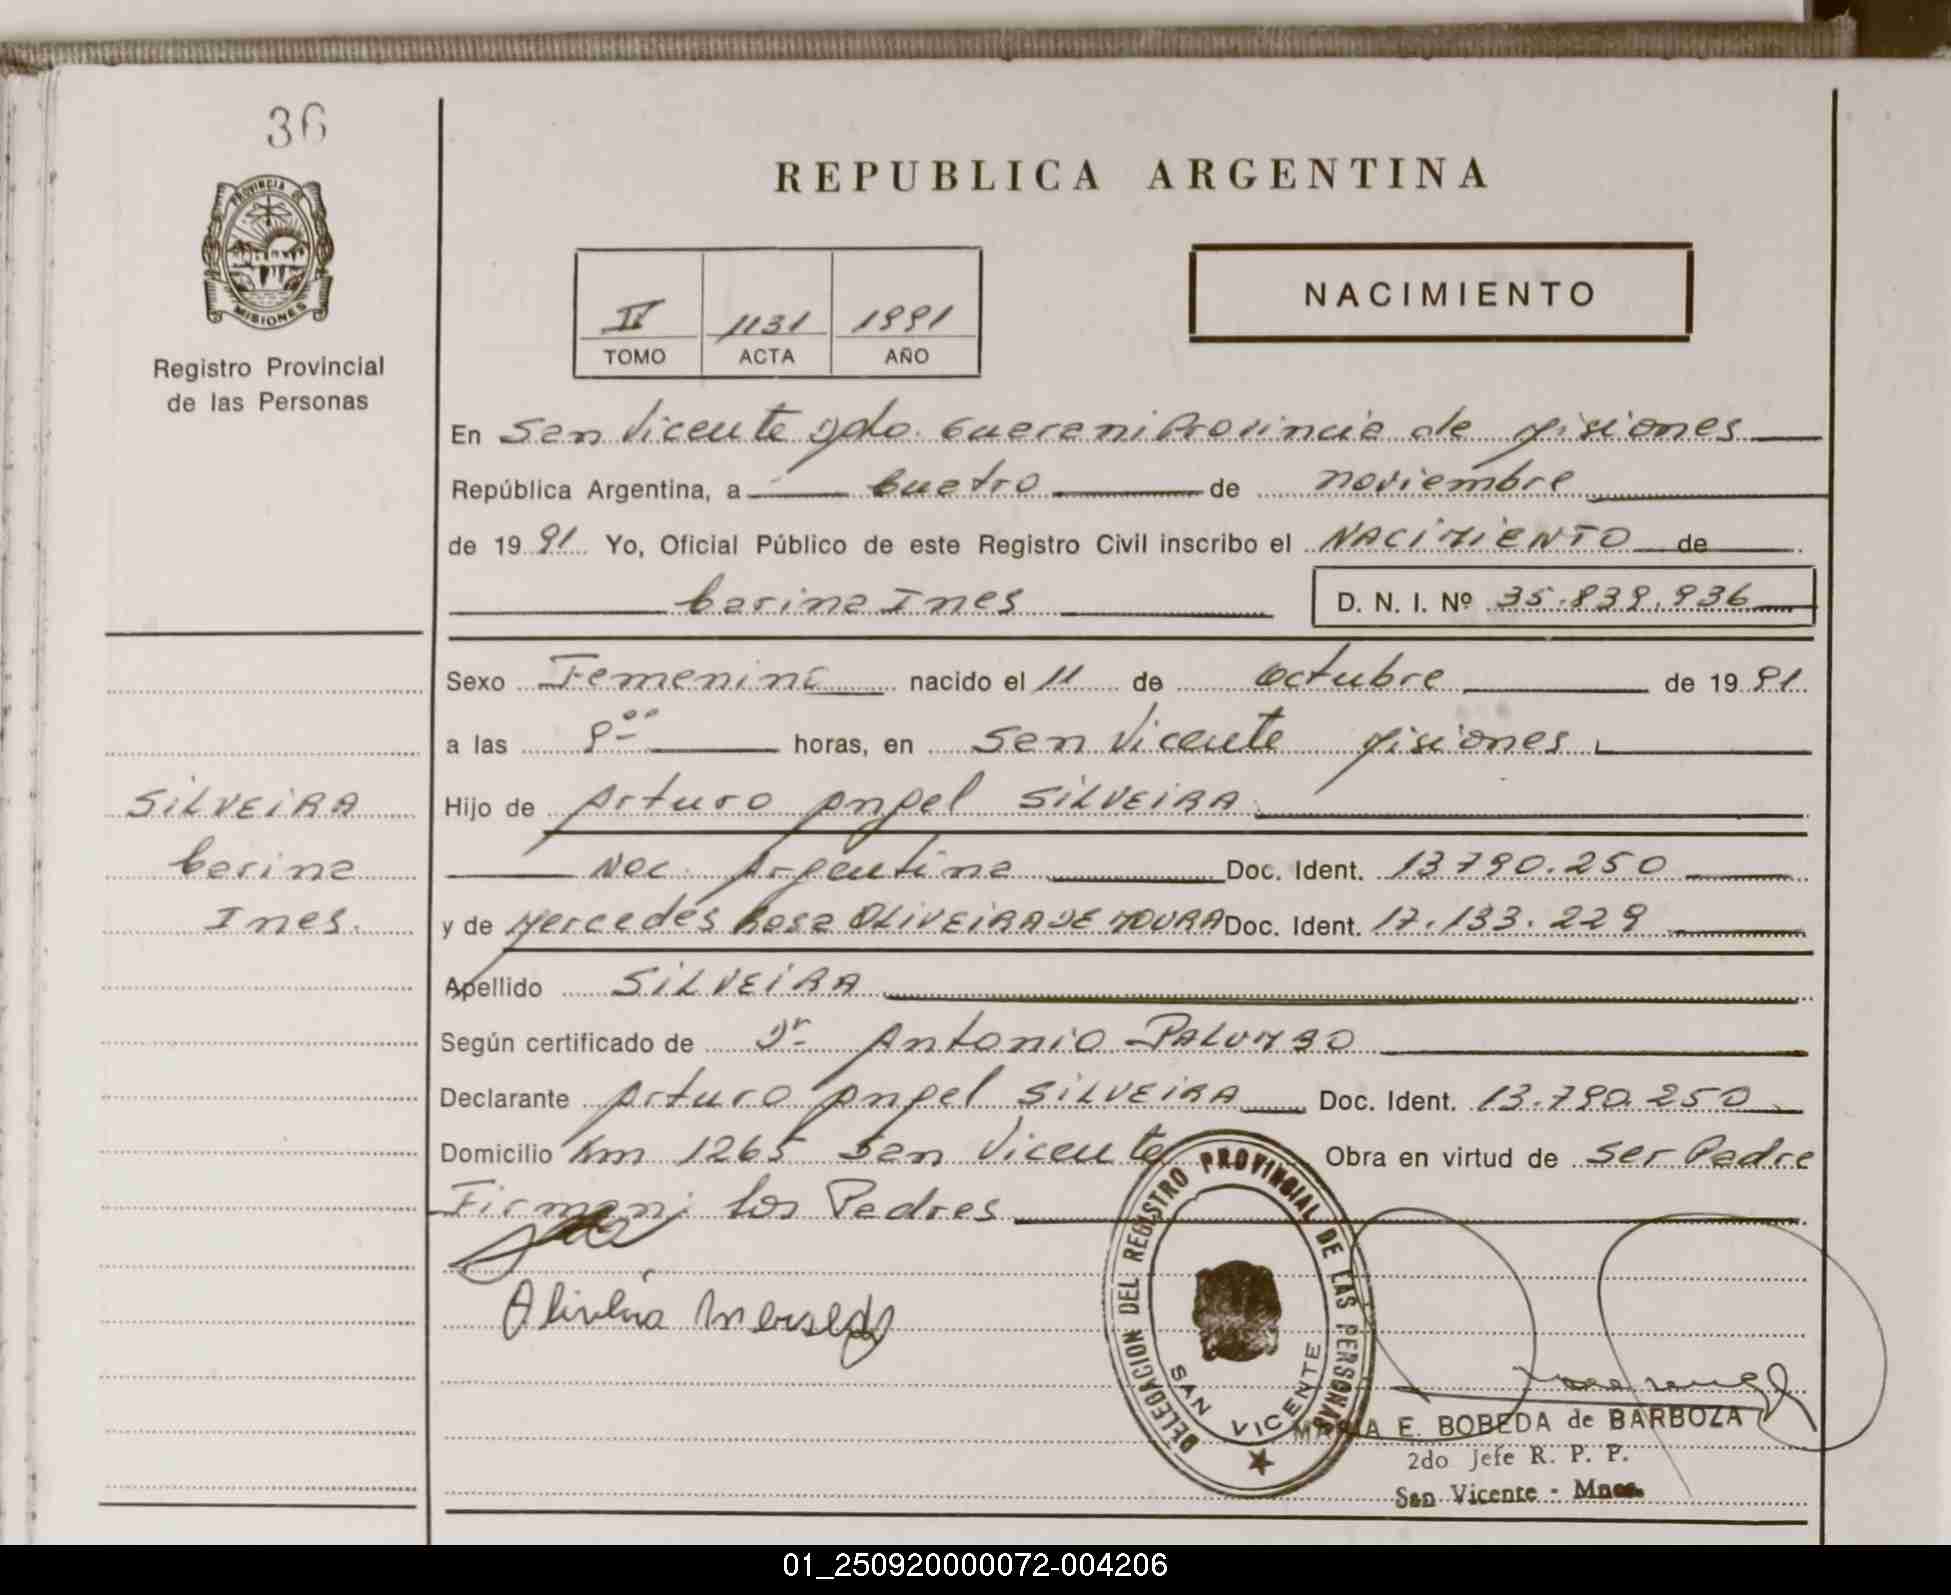 36
PROVINCIA DE
MISIONES
Registro Provincial
de las Personas
REPUBLICA ARGENTINA
II 1131 1991
TOMO ACTA AÑO
NACIMIENTO
En San Vicente Dpto. Guarani Provincia de Misiones
República Argentina, a Cuatro de noviembre
de 1991. Yo, Oficial Público de este Registro Civil inscribo el NACIMIENTO de
Carina Ines D. N. I. Nº 35.839.936
Sexo Femenino nacido el 11 de octubre de 1991.
a las 8:00 horas, en San Vicente Misiones
Hijo de Arturo Angel SILVEIRA
Nac. Argentina Doc. Ident. 13.790.250
y de Mercedes Rosa OLIVEIRA DE MOURA Doc. Ident. 17.133.229
Apellido SILVEIRA
Según certificado de Dr Antonio PALUMBO
Declarante Arturo Angel SILVEIRA Doc. Ident. 13.790.250
Domicilio Km 1265 San Vicente Obra en virtud de Ser Padre
Firman: los Padres
SILVEIRA
Carina
Ines.
DELEGACION DEL REGISTRO PROVINCIAL DE LAS PERSONAS
SAN VICENTE
MARIA E. BOBEDA de BARBOZA
2do Jefe R. P. P.
San Vicente - Mnes.
01_250920000072-004206